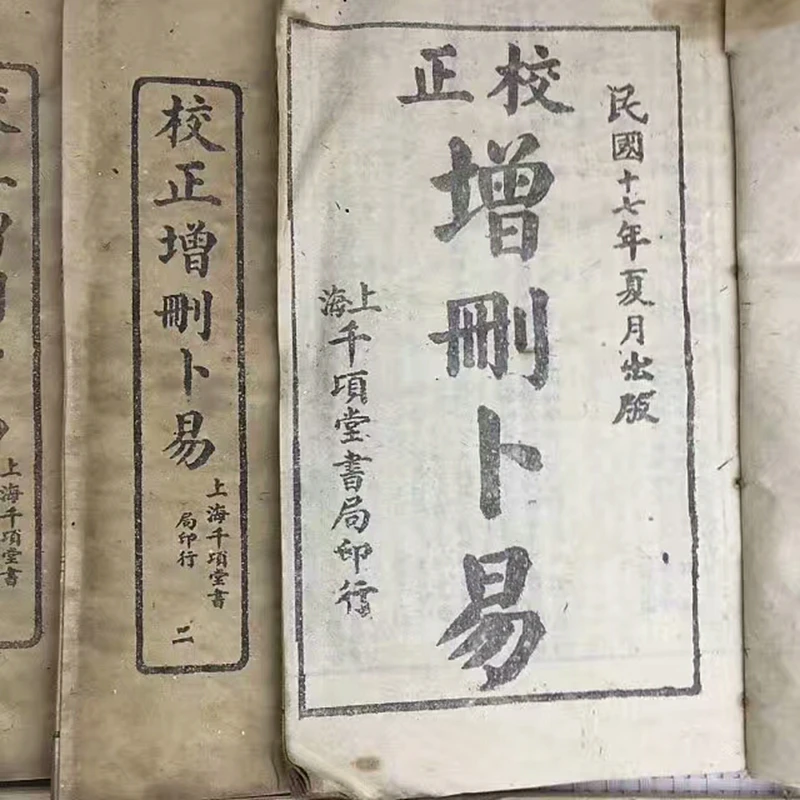 民國十七年夏月出版
校正
增刪卜易
上海
千頃堂書局印行
校正增刪卜易
上海千頃堂書
局印行
二
上海千頃堂書